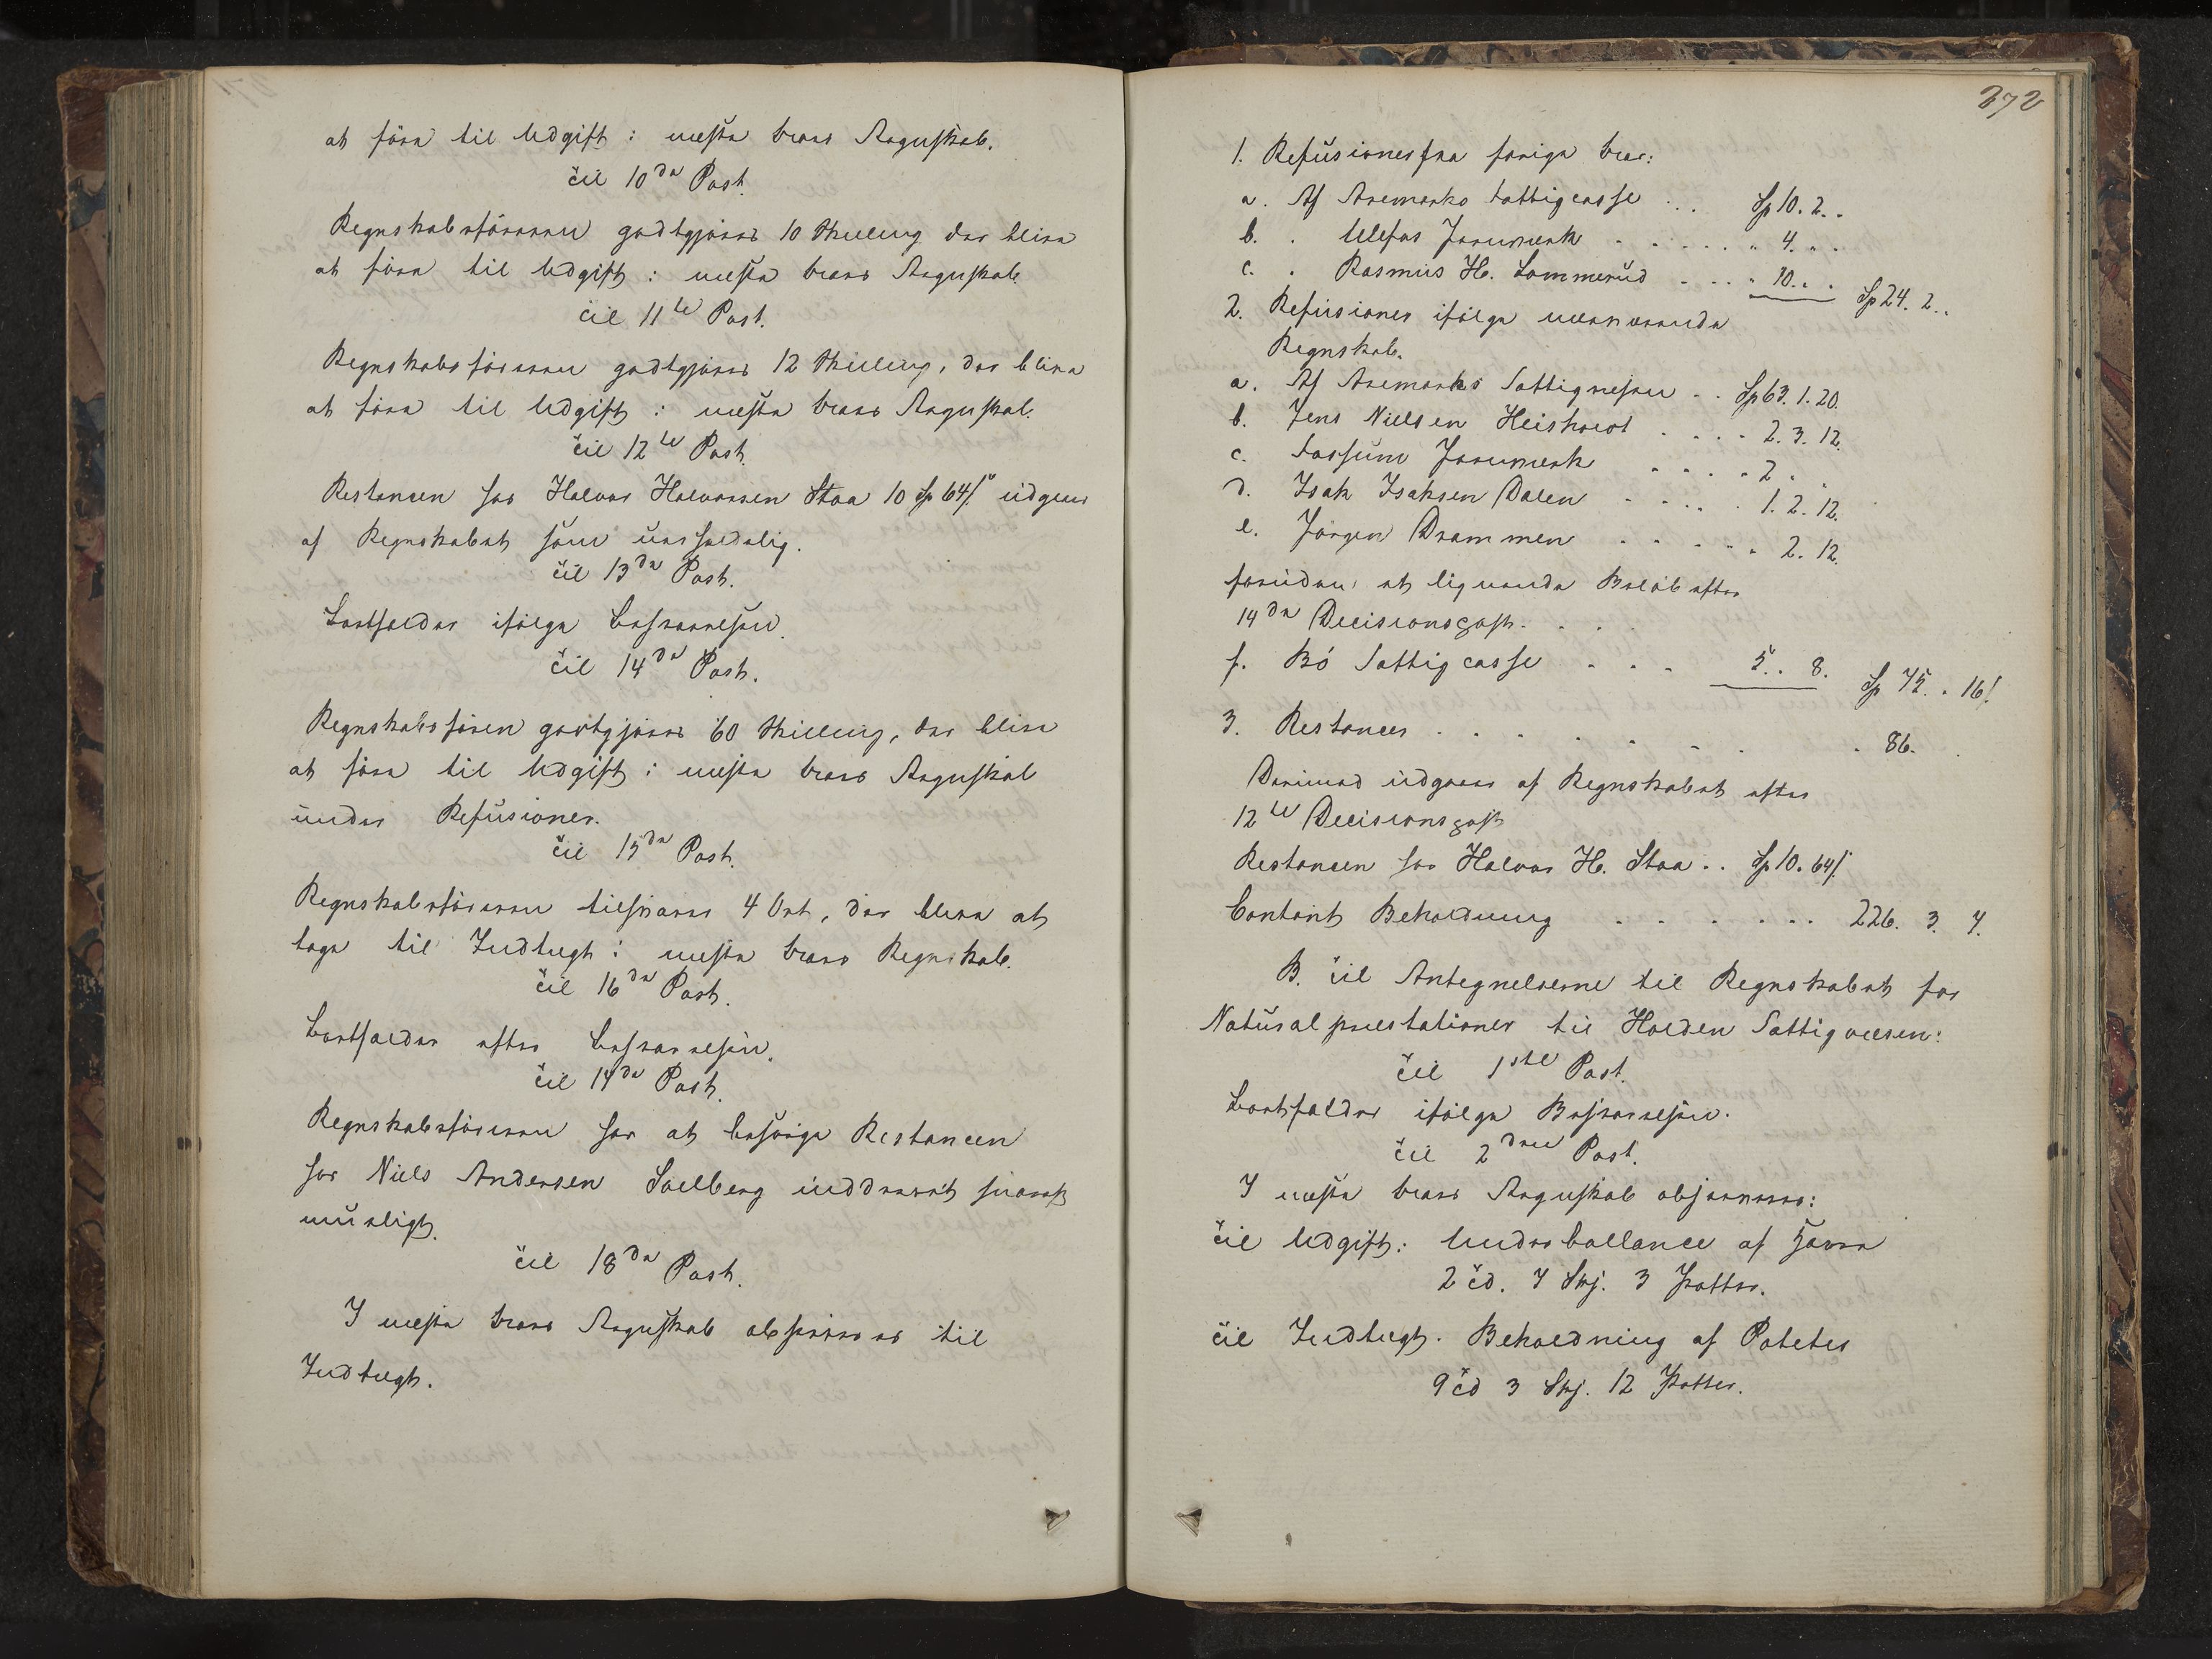 at före til Udgift i næste Aars Regnskab.
Til 10de Post.
Regnskabsföreren godtgjöres 10 Skilling der blive
at före til Udgift i næste Aars Regnskab.
Til 11te Post.
Regnskabsföreren godtgjöres 12 Skilling, der blive
at före til Udgift i næste Aars Regnskab.
Til 12te Post.
Restancen hos Halvor Halvorsen Stoa 10 Sp 64 s. udgaar
af Regnskabet som uerholdelig.
Til 13de Post.
Bortfalder ifölge Besvarelsen.
Til 14de Post.
Regnskabsfören godtgjöres 60 Skilling, der blive
at före til Udgift i næste Aars Regnskab
under Refusioner.
Til 15de Post.
Regnskabsföreren tilsvarer 4 Ort, der blive at
tage til Indtægt i næste Aars Regnskab.
Til 16de Post.
Bortfalder efter Besvarelsen.
Til 17de Post.
Regnskabsföreren har at besörge Restancen
hos Niels Andersen Solberg inddrevet snarest
muligt.
Til 18de Post.
I næste Aars Regnskab til
Indtægt.
272
1. Refusioner fra forige Aar:
a. Af Aremarks Fattigcasse . . . Sp 10. 2. .
b. . Ulefos Jernværk . . . . . . " 4. " .
c. . Rasmus H. Lommerud . . . . " 10. . . Sp 24. 2. .
2. Refusioner ifölge nærværende
Regnskab.
a. Af Aremarks Fattigvæsen . . Sp 63. 1. 20.
b. Jens Nielsen Heisholt . . . . 2. 3. 12.
c. Fossum Jernværk . . . . . 2 . .
d. Isak Isaksen Dalen . . . . . 1. 2. 12.
e. Jörgen Drammen . . . . . . 2. 12.
foruden at lignende Belöb efter
14de Decisionspost. . . .
f. Bö Fattigcasse . . . . 5. . 8. Sp 75. . 16 s.
3. Restancer . . . . . . . . . 86.
Derimod udgaaer af Regnskabet efter
12te Decisionspost
Restancen hos Halvor H. Stoa . . Sp 10. 64 s.
Contant Beholdning . . . . . . 226. 3. 7.
B. Til Antegnelserne til Regnskabet for
Naturalpræstationer til Holden Fattigvæsen:
Til 1ste Post.
Bortfalder ifölge Besvarelsen.
Til 2den Post.
I næste Aars Regnskab observeres:
Til Udgift: Underballance af Havre
2 Td. 7 Skj. 3 Potter.
Til Indtægt. Beholdning af Poteter
9 Td 3 Skj. 12 Potter.